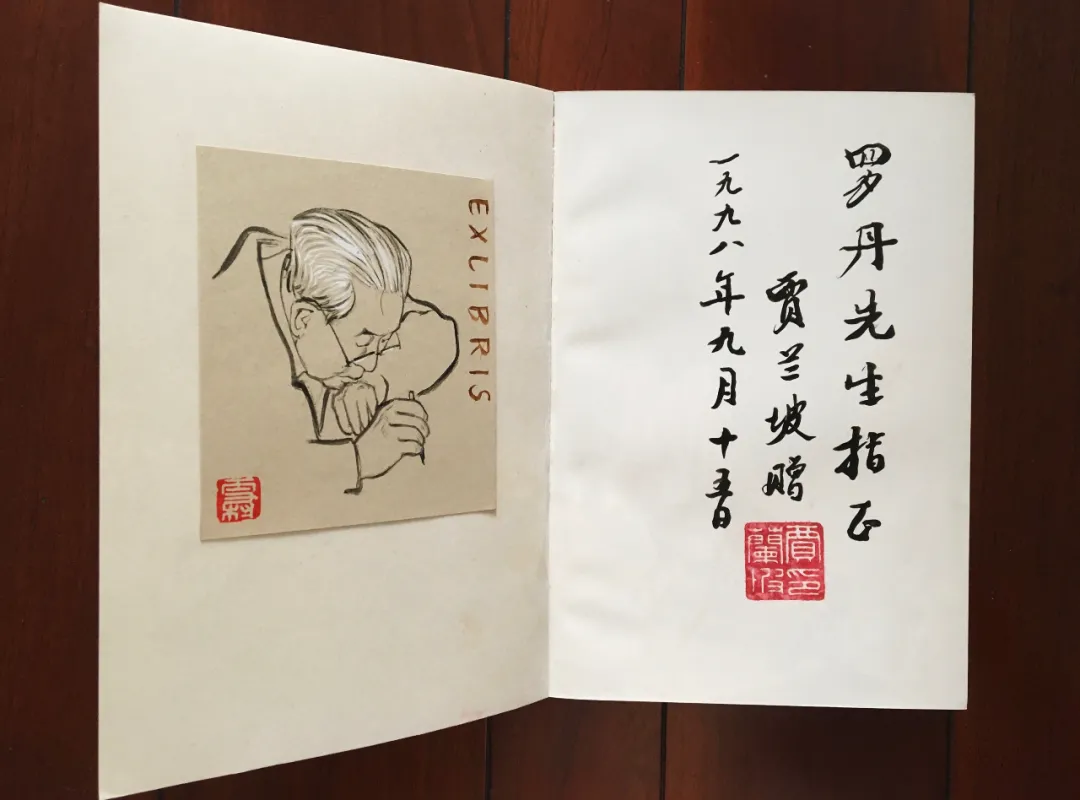 EXLIBRIS
罗丹先生指正
贾兰坡赠
一九九八年九月十五日